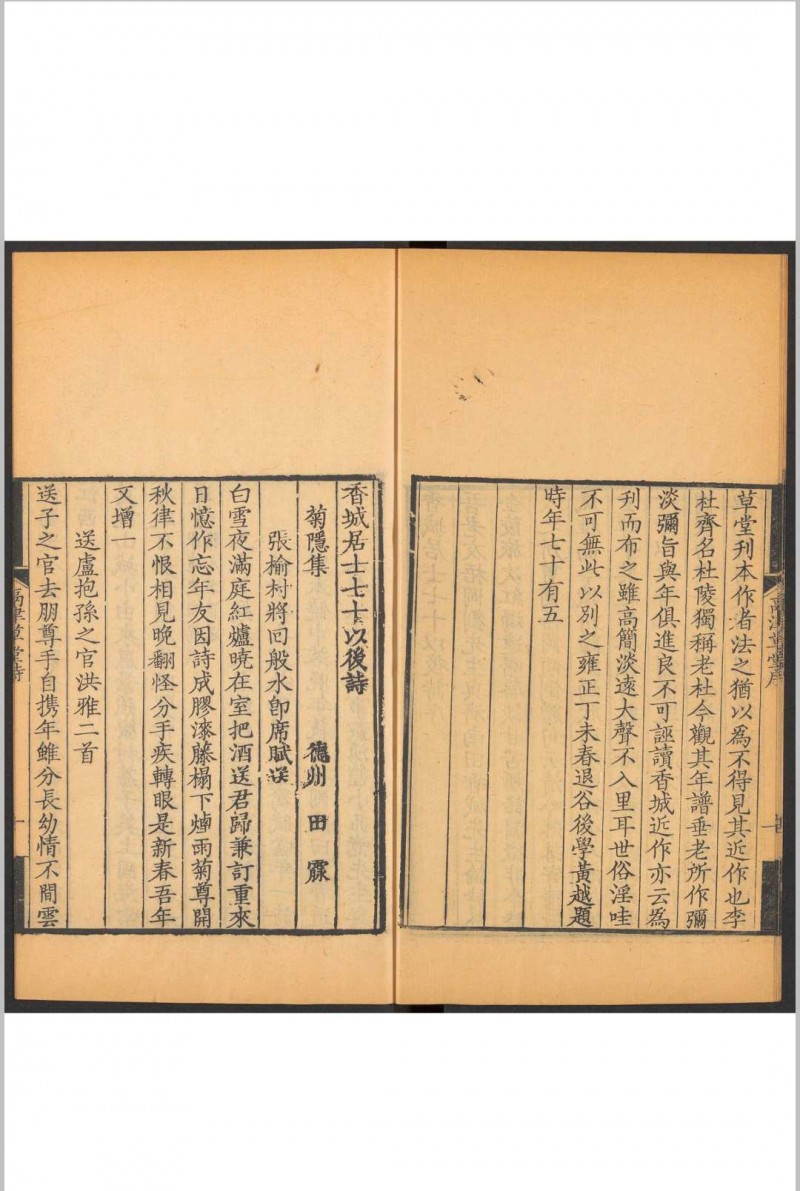 草堂刊本作者法之猶以為不得見其近作也李
杜齊名杜陵獨稱老杜今觀其年譜垂老所作彌
淡彌旨與年俱進良不可誣讀香城近作亦云為
刊而布之雖高簡淡遠大聲不入里耳世俗淫哇
不可無此以別之雍正丁未春退谷後學黃越題
時年七十有五
香城居士七十以後詩
菊隱集 德州 田霡
張榆村將回般水卽席賦送
白雪夜滿庭紅爐曉在室把酒送君歸兼訂重來
日憶作忘年友因詩成膠漆藤榻下煙雨菊尊開
秋律不恨相見晚翻怪分手疾轉眼是新春吾年
又增一
送盧抱孫之官洪雅二首
送子之官去朋尊手自携年雖分長幼情不間雲
鬲津草堂詩
一